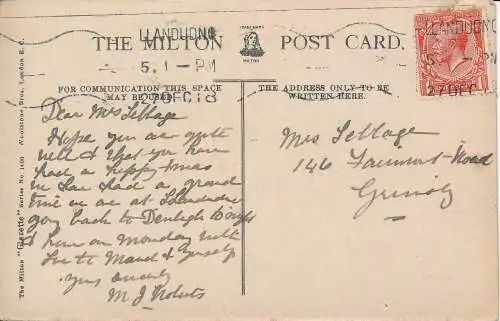 LLANDUDNO
5. 1 - PM
27 DEC 18
LLANDUDNO
5. - PM
27 DEC
THE MILTON POST CARD.
TRADE MARK
MILTON
FOR COMMUNICATION THIS SPACE
MAY BE USED
THE ADDRESS ONLY TO BE
WRITTEN HERE.
The Milton "Glazette" Series No. Woolstone Bros., London E.C.
Dear Mrs
Hope you are quite
well & that you have
had a happy Xmas
had a grand
time at Llandudno
going back to Denbigh
here on Monday with
love to Maud & yourself
yours sincerely
M J Roberts
Mrs
146 Road
Grimsby